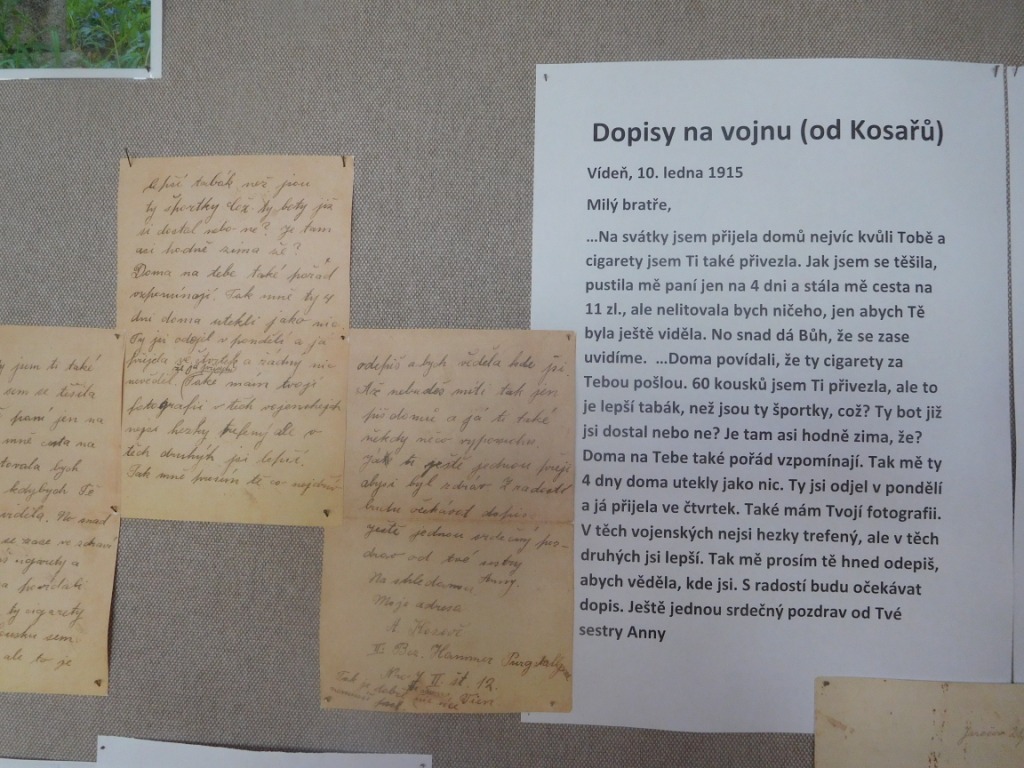 y jsem ti také
sem se těšila
paní jen na
mně cesta na
bych
kdybych Tě
viděla. No snad
se zase ve zdraví
cigarety a
povídali
ty cigarety
sem
ale to je
lepší tabák než jsou
ty športky což. ty boty již
si dostal nebo ne? je tam
asi hodně zima že?
Doma na tebe také pořád
vzpomínají. Tak mně ty 4
dni doma utekli jako nic.
Ty jsi odejel v pondělí a ja
přijela ve čtvrtek a žádný nic
nevěděl. Také mám tvoji
fotografii v těch vojenskejch
nejsi hezky trefený ale v
těch druhých jsi lepší.
Tak mně prosím tě co nejdřív
odepiš abych věděla kde jsi.
Až nebudeš míti tak jen
piš domů a já ti také
někdy něco
ti ještě jednou přeji
abysi byl zdráv S radostí
budu očekávat dopis.
Ještě jednou srdečný poz-
drav od tvé sestry
Anny.
Na shledanou
Moje adresa
A. Kosař
Hammer Purgstallgasse
No 7 II št 12.
Wien
Dopisy na vojnu (od Kosařů)
Vídeň, 10. ledna 1915
Milý bratře,
…Na svátky jsem přijela domů nejvíc kvůli Tobě a
cigarety jsem Ti také přivezla. Jak jsem se těšila,
pustila mě paní jen na 4 dni a stála mě cesta na
11 zl., ale nelitovala bych ničeho, jen abych Tě
byla ještě viděla. No snad dá Bůh, že se zase
uvidíme.  …Doma povídali, že ty cigarety za
Tebou pošlou. 60 kousků jsem Ti přivezla, ale to
je lepší tabák, než jsou ty športky, což? Ty bot již
jsi dostal nebo ne? Je tam asi hodně zima, že?
Doma na Tebe také pořád vzpomínají. Tak mě ty
4 dny doma utekly jako nic. Ty jsi odjel v pondělí
a já přijela ve čtvrtek. Také mám Tvojí fotografii.
V těch vojenských nejsi hezky trefený, ale v těch
druhých jsi lepší. Tak mě prosím tě hned odepiš,
abych věděla, kde jsi. S radostí budu očekávat
dopis. Ještě jednou srdečný pozdrav od Tvé
sestry Anny